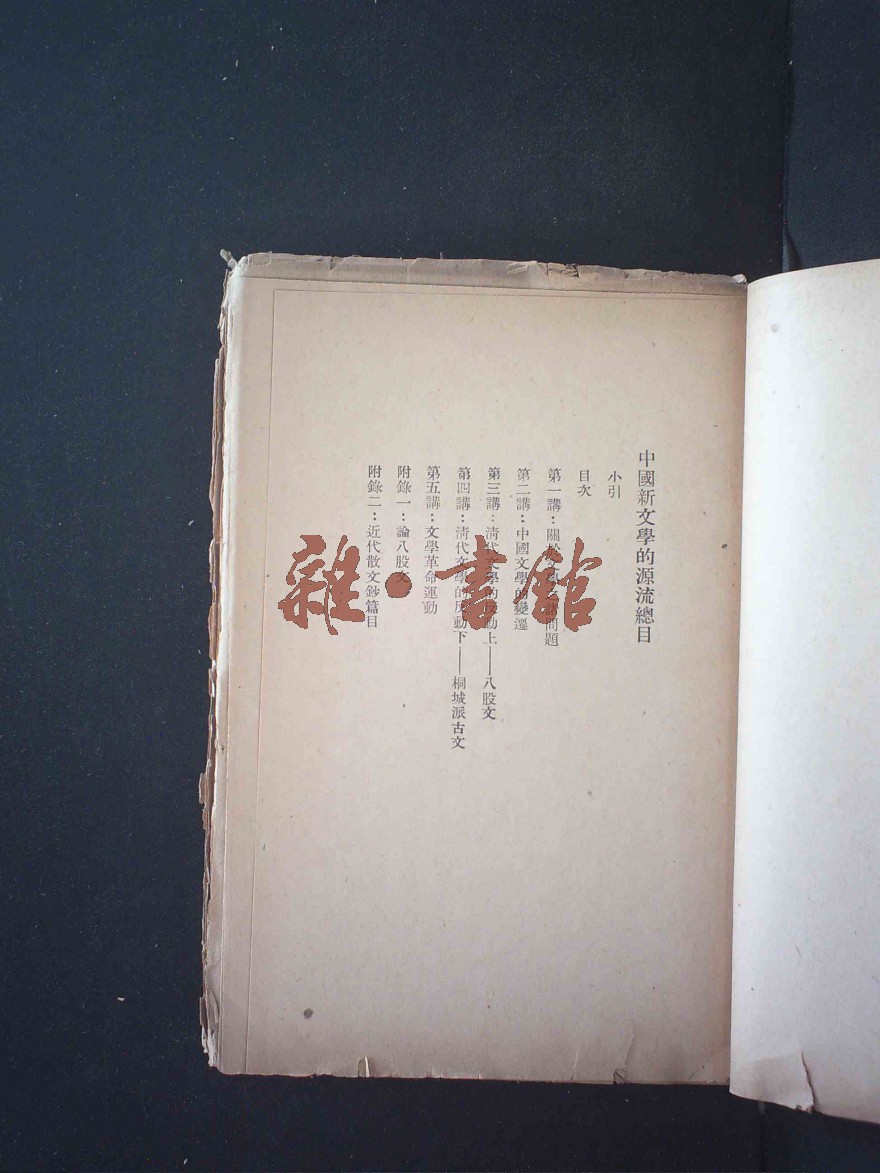 中國新文學的源流總目
小引
目次
第一講：關於文學之諸問題
第二講：中國文學的變遷
第三講：清代文學的反動上——八股文
第四講：清代文學的反動下——桐城派古文
第五講：文學革命運動
附錄一：論八股文
附錄二：近代散文鈔篇目
雜·書館